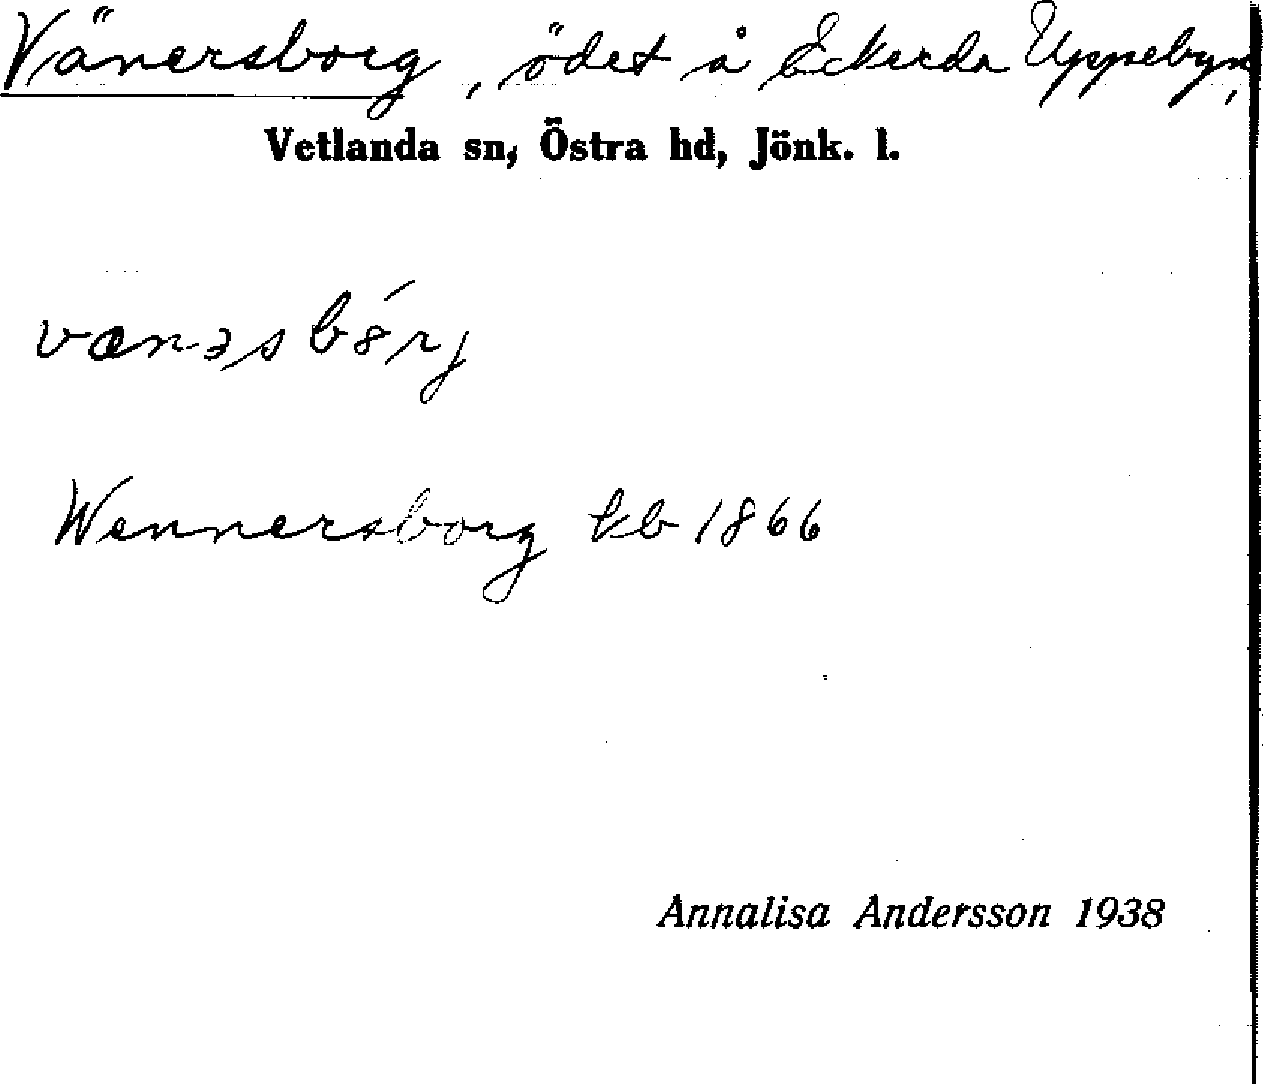 Vänersborg, ödet å Eckerda Uppebyn,
Vetlanda sn, Östra hd, Jönk. l.
vænəsbórj
Wennersborg kb 1866
Annalisa Andersson 1938